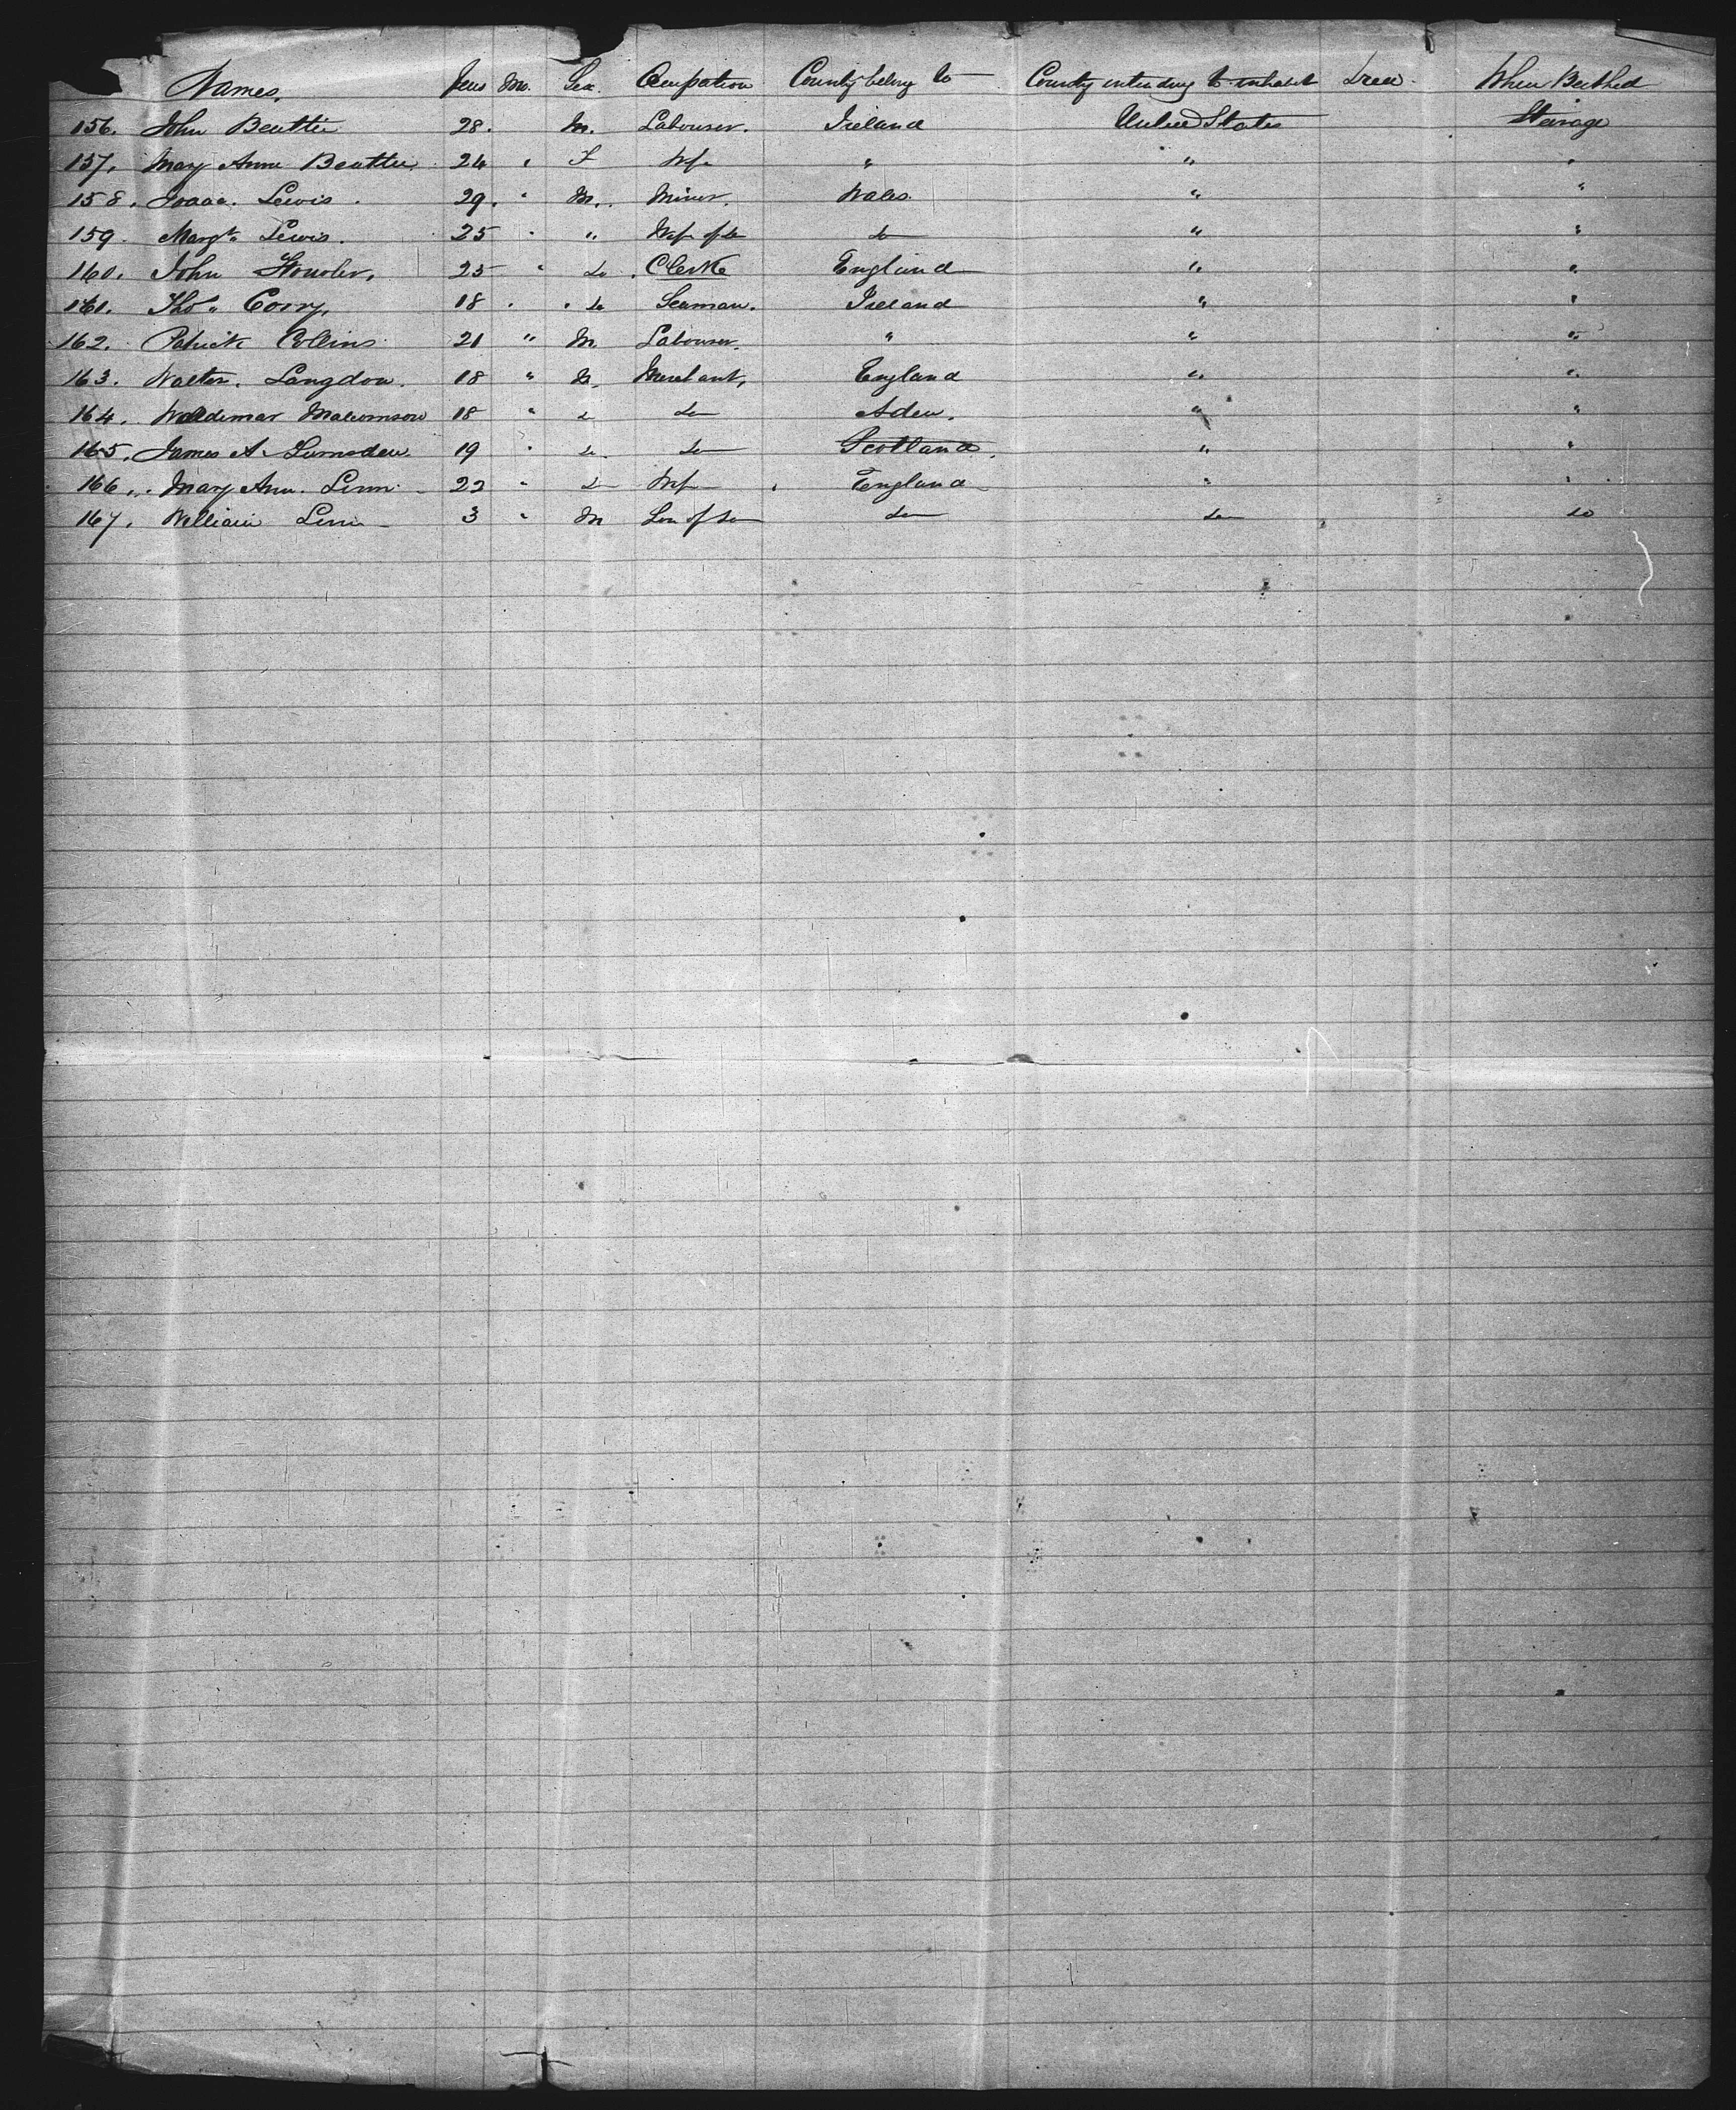 Names. Years Mo. Sex. Occupation County belong to County intending to inhabit Died. When Berthed
156. John Beattie 28. M. Labourer. Ireland United States Steirage
157. Mary Anne Beattie 24 " F Wife " " "
158. Isaac Lewis. 29. " M. Miner. Wales. " "
159. Margt. Lewis. 25 " " Wife of do do " "
160. John 25 " do Clerke England " "
161. Thos. Corry, 18 " do Seaman. Ireland " "
162. Patrick Collins 21 " M. Labourer. " " "
163. Walter. Langdon. 18 " M. Merchant, England " "
164. Waldimar Malcomson 18 " do do Aden. " "
165. James A. Lumsden. 19 " do do Scotland. " "
166. Mary Ann. Linn 22 " do Wife England " "
167. William Linn 3 " M Son of do do do do